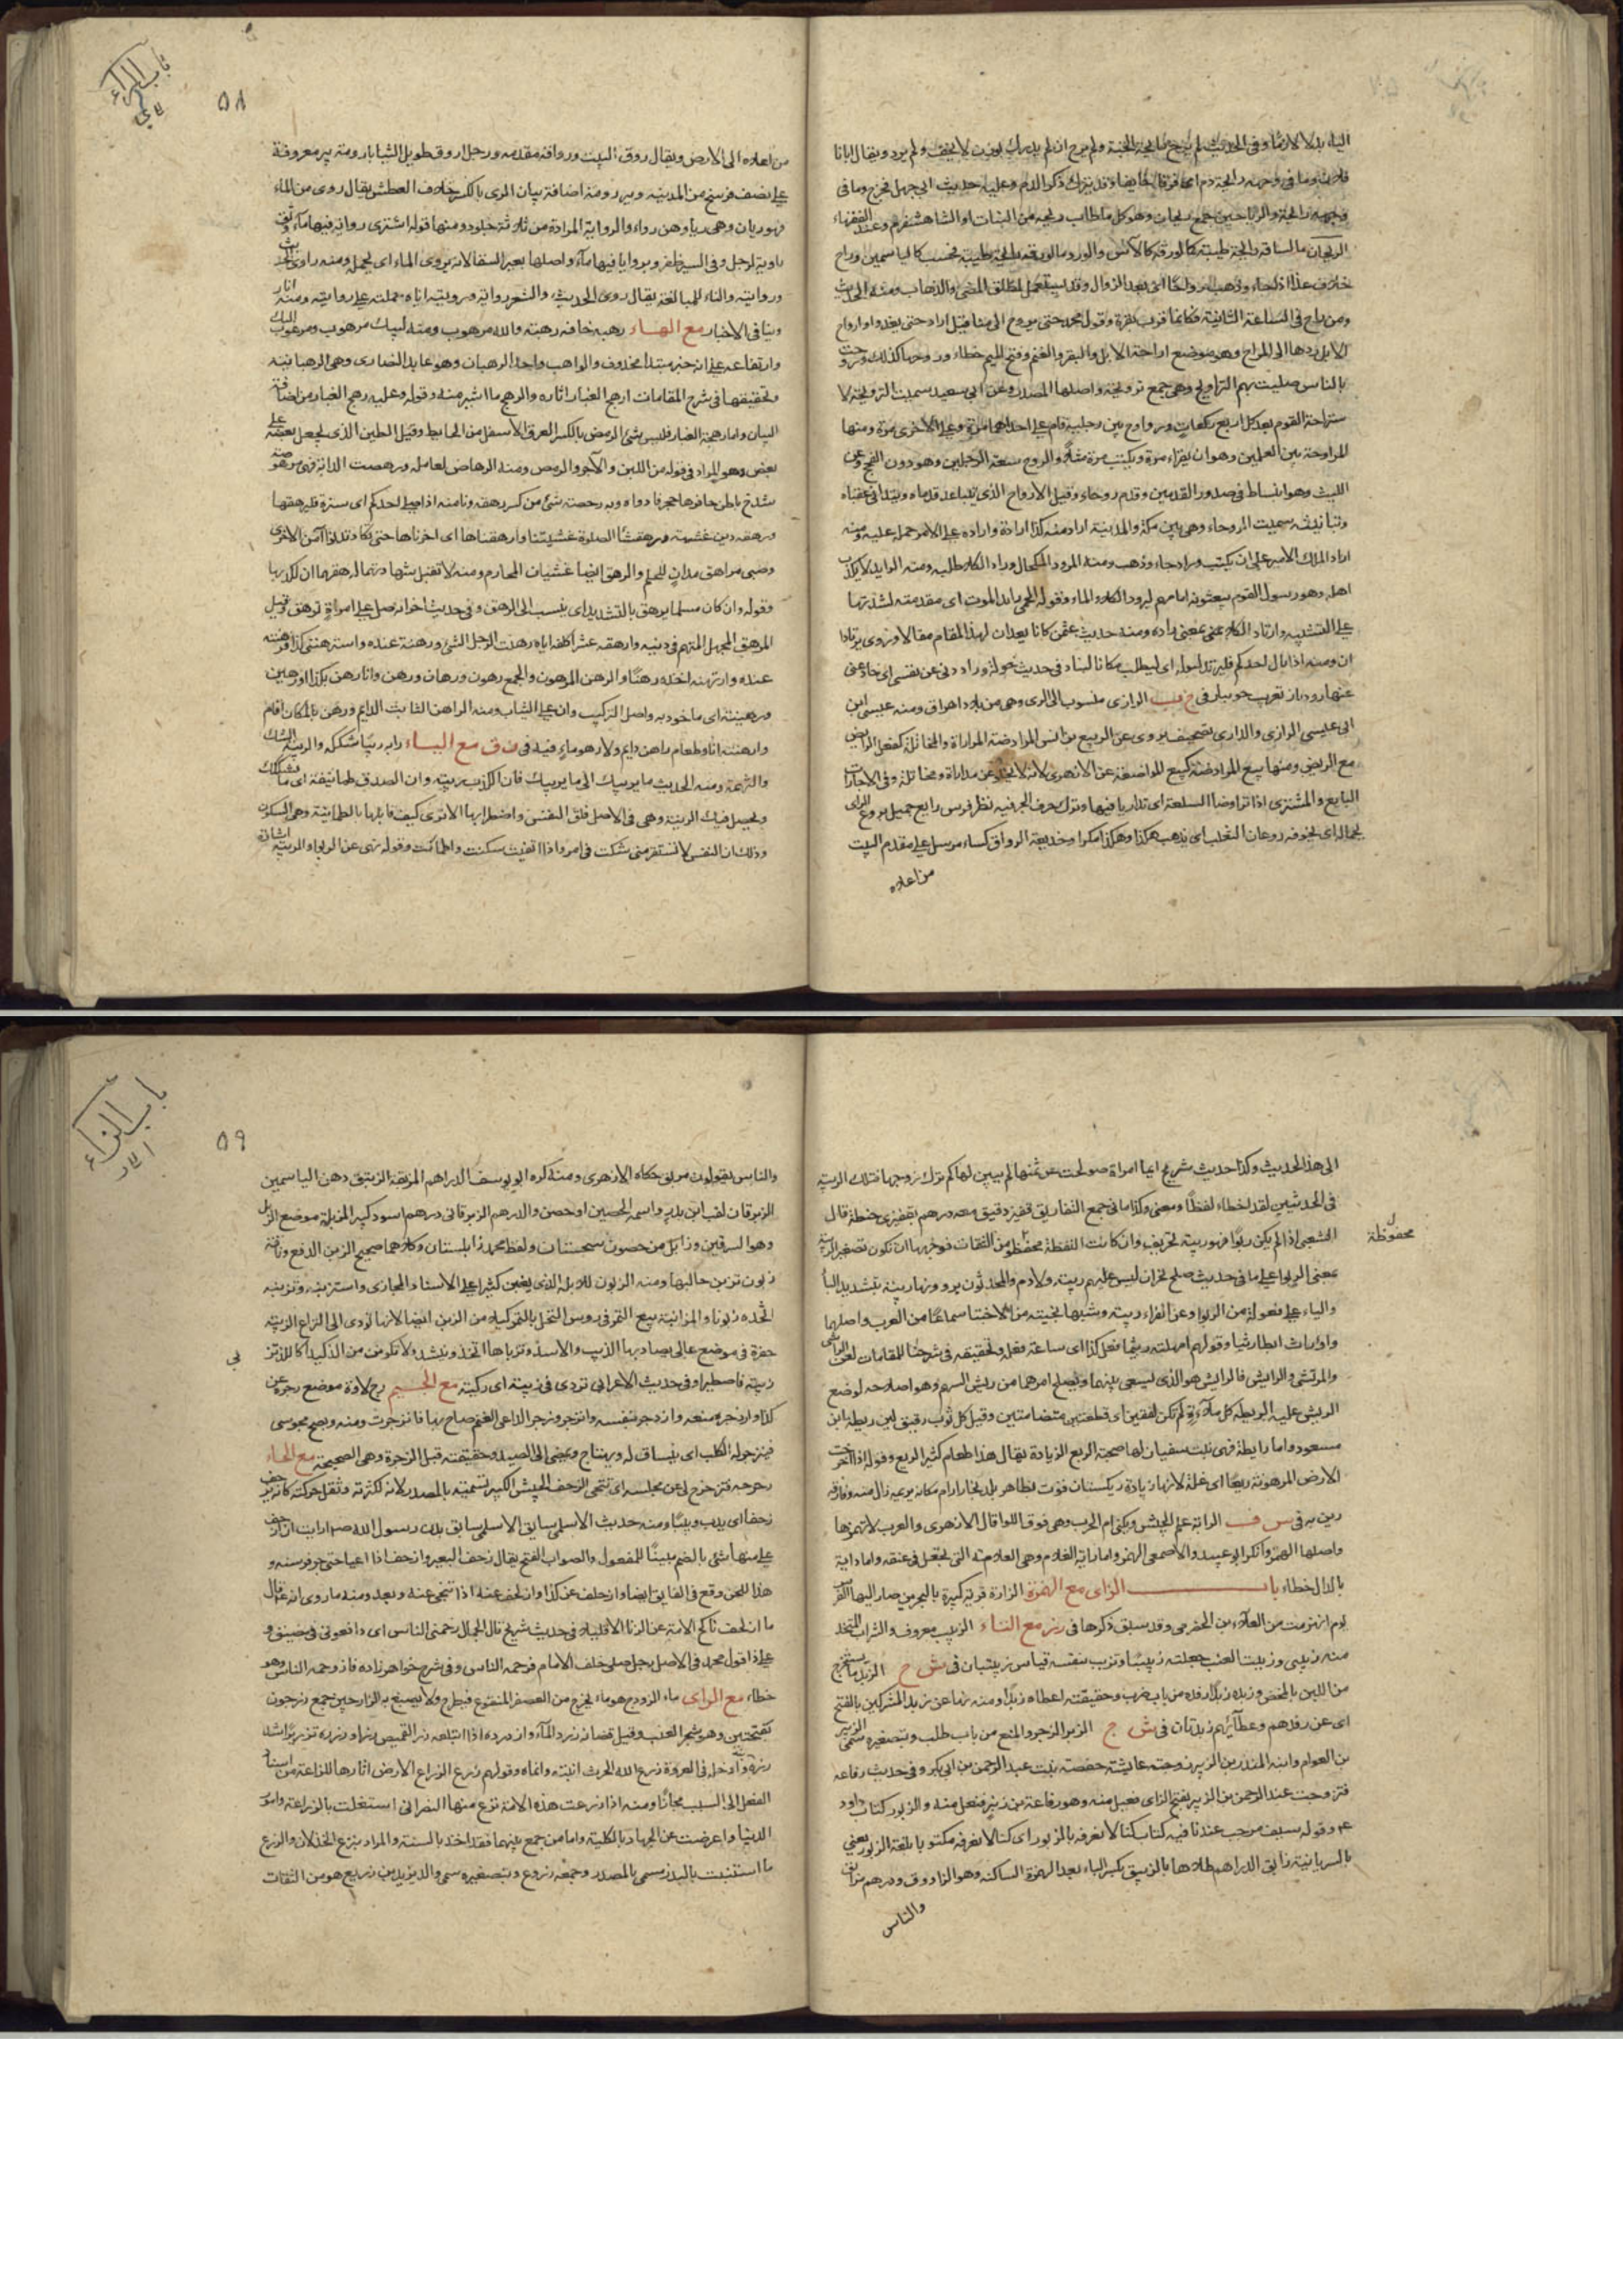 الياء بدلا لازما وفي الحديث لم يرح رايحة الجنة ولم يرح ان لم يدرك بوزن لا يخف ولم يرد ويقال اتانا
فلان وما في وجهه رايحة دم اي فرقا خايفا وقد يترك ذكر الدم وعليه حديث ابي جهل فخرج وما في
وجهه رايحة والرياحين جمع ريحان وهو كل ما طاب ريحه من النبات او الشاهسفرم وعند الفقهاء
الريحان ما لساقه رايحة طيبة كما لورقه كالآس والورد ما لورقه رايحة طيبة فحسب كالياسمين وراح
خلاف غدا اذا جاء وذهب رواحا اي بعد الزوال وقد يستعمل لمطلق المضي والذهاب ومنه الحديث
ومن راح في الساعة الثانية فكانما قرب بقرة وقول محمد حتى يروح الى منا قيل اراد حتى يغدوا واراح
الابل ردها الى المراح وهو موضع اراحة الابل والبقر والغنم وفتح الميم خطاء وروحها كذلك وروحت
بالناس صليت بهم التراويح وهي جمع ترويحة واصلها المصدر وعن ابي سعيد سميت الترويحة لا
ستراحة القوم بعد كل اربع ركعات وراوح بين رجليه قام على احداهما مرة وعلى الاخرى مرة ومنها
المراوحة بين العملين وهو ان يقراء مرة ويكتب مرة مثلا والروح سعة الرجلين وهو دون الفحج وعن
الليث هو انبساط في صدور القدمين وقدم روحاء وقيل الاروح الذي يتباعد قدماه ويتدانى عقباه
وبتانيثه سميت الروحاء وهي بين مكة والمدينة اراد منه كذا ارادة واراده على الامر حمله عليه ومنه
اراد الملك الامير على ان يكتب وراد جاء وذهب ومنه المرود المكحال وراد الكلاء طلبه ومنه الرايد لا يكذب
اهله وهو رسول القوم يبعثونه امامهم ليرود الكلاء والماء وقوله الحمى رائد الموت اي مقدمته لشدتها
على التشبيه وارتاد الكلاء بمعنى راده ومنه حديث عثمن كانا يعدان لهذا المقام مقالا وروى يرتادا
ان ومنه اذا بال احدكم فليرتد لبوله اي ليطلب مكانا لينا وفي حديث خولة وراودني عن نفسي اي خادعني
عنها رودبار تعريب جويبار في خ ب الرازي منسوب الى الري وهي من بلاد العراق ومنه عيسى ابن
ابي عيسى الرازي والداري تصحيف يروى عن الربيع بن انس المراوضة المداراة والمخاتلة كفعل الرايض
مع الريض ومنها بيع المراوضة كبيع المواصفة عن الازهري لانه لا يخلو عن مداراة ومخاتلة وفي الاجارات
البايع والمشترى اذا تراوضا السلعة اي تداريا فيها وترك حرف الجر فيه نظر فرس رايع جميل يروع الراى
بجماله اي يخوفه روغان الثعلب ان يذهب هكذا وهكذا مكرا وخديعة الرواق كساء مرسل على مقدم البيت
من اعلاه
باب الراء
٥٨
من اعلاه الى الارض ويقال روق البيت ورواقه مقدمه ورجل اروق طويل الثنايا رومة بير معروفة
على نصف فرسخ من المدينة وبير رومة اضافة بيان الري بالكسر خلاف العطش يقال روى من الماء
فهو ريان وهي ريا وهن رواء والراوية المزادة من ثلاثة جلود ومنها قوله اشترى راوية فيها ماء وشق
راوية لرجل وفي السير ظفروا بروايا فيها ماء واصلها بعير السقا لانه يروى الماء اي يحمله ومنه راوي الحديث
وراويته والتاء للمبالغة يقال روى الحديث والشعر رواية ورويته اياه حملته على روايته ومنه انا
روينا في الاخبار مع الهاء رهبه خافه رهبة والله مرهوب ومنه لبيك مرهوب ومرغوب اليك
وارتفاعه على انه خبر مبتدأ محذوف والراهب واحد الرهبان وهو عابد النصارى وهي الرهبانية
وتحقيقها في شرح المقامات ارهج الغبار اثاره والرهج ما اثير منه وقوله وعليه رهج الغبار من اضافة
البيان واما رهجة الغبار فليس بشئ الرهص بالكسر العرق الاسفل من الحايط وقيل الطين الذي يجعل بعضه على
بعض وهو المراد في قوله من اللبن والآجر والرهص ومنه الرهاص لعامله ورهصت الدابة فهي مرهوصة
شدخ باطن حافرها حجر فادواه وبه رهصة شئ من كسر رهقه دنا منه اذا صلى احدكم الى سترة فليرهقها
ورهقه دين غشيه ورهقتنا الصلوة غشيتنا وارهقناها اي اخرناها حتى تكاد تدنوا من الاخرى
وصبي مراهق مدان للحلم والرهق ايضا غشيان المحارم ومنه لا تقبل شهادتهما لرهقهما ان لكذبهما
وقوله وان كان مسلما يرهق بالتشديد اي ينسب الى الرهق وفي حديث اخر انه صلى على امراة ترهق وقيل
المرهق المجهل المتهم في دينه وارهقه عشرا كلفه اياه رهنت الرجل الشئ ورهنته عنده واسترهنني كذا فرهنته
عنده وارتهنه اخذه رهنا والرهن المرهون والجمع رهون ورهان ورهن وانا رهن بكذا او رهين
ورهينته اي ماخوذ به واصل التركيب دال على الثبات ومنه الراهن الثابت الدايم ورهن بالمكان اقام
وارهنته انا وطعام راهن دايم والرهو ماء فيه في ن ق مع الياء رابه ريبا شككه والريبة الشك
والتهمة ومنه الحديث ما يريبك الى ما لا يريبك فان الكذب ريبة وان الصدق طمانينة اي ما يشكك
ويحصل فيك الريبة وهي في الاصل قلق النفس واضطرابها الا ترى كيف قابلها بالطمانينة وهي السكون
وذلك ان النفس لا تستقر متى شكت في امر واذا ايقنت سكنت واطمأنت وقوله نهى عن الربوا والريبة اشارة
الى هذا الحديث وكذا حديث شريح ايما امراة صولحت عن ثمنها لم يبين لها كم ترك زوجها فتلك الريبة
في الحديثين لقد اخطاء لفظا ومعنى وكذا ما في جمع التفاريق قفيز دقيق معه درهم بقفيزي حنطة قال
الشعبي اذا لم يكن ربوا فهو ريبة تحريف وان كانت اللفظة محفظو من الثقات فوجهها ان تكون تصغير الربية
محفوظة
بمعنى الربوا على ما في حديث صلح نجران ليس عليهم ربية ولا دم والمحدثون يروونها ربية بتشديد الباء
والياء على فعولة من الربوا وعن الفراء ربية وشبهها بحبية من الاحتبا سماعا من العرب واصلهما
واو اراث ابطا ريثا وقولهم امهلته ريثما فعل كذا اي ساعة فعله وتحقيقه في شرحنا للمقامات لعن الراشي
والمرتشي والرايش فالرايش هو الذي يسعى بينهما ويصلح امرهما من ريش السهم وهو اصلاحه لوضع
الريش عليه الريطة كل ملاءة لم تكن لفقين اي قطعتين متضامتين وقيل كل ثوب رقيق لين ريطة ابن
مسعود واما رايطة فهي بنت سفيان لها صحبة الريع الزيادة يقال هذا طعام كثير الريع وقوله اذا اخرجت
الارض المرهونة ريعا اي غلة لانها زيادة ريكستان فوت بظاهر بلد بخارا رام مكانه يريمه زال منه وفارقه
رين به في س ف الراية علم الجيش وتكنى ام الحرب وهي فوق اللوا قال الازهري والعرب لا تهمزها
واصلها الهمز وانكر ابو عبيد والاصمعي الهمز واما راية الغلام وهي العلامة التي تجعل في عنقه واما داية
بالدال خطاء باب الزاي مع الهمزة الزارة قرية كبيرة بالبحرين
يوم انهزمت من العلاء بن الحضرمي وقد سبق ذكرها في رز مع الباء الزبيب معروف والشراب المتخذ
منه زبيبي وزببت العنب جعلته زبيبا وتزبب بنفسه قياس زبيبتان في ش ج الزبد ما يستخرج
من اللبن بالمخض وزبده زبدا رفده من باب ضرب وحقيقته اعطاه زبدا ومنه نهى عن زبد المشركين بالفتح
اي عن رفدهم وعطائهم زبدتان في ش ج الزبر الزجر والمنع من باب طلب وبتصغيره سمي الزبير
بن العوام وابنه المنذر بن الزبير زوجته عايشة حفصة بنت عبد الرحمن بن ابي بكر وفي حديث رفاعة
فتزوجت عبد الرحمن بن الزبير بفتح الزاي فعيل منه وهو رفاعة بن زنبر فنعل منه والزبور كتاب داود
ع م وقوله سيف مرحب عندنا فيه كتاب كنا لا نعرفه بالزبور اي كنا لا نعرفه مكتوبا بلغة الزبور يعني
بالسريانية زابق الدراهم طلاها بالزيبق بكسر الباء بعد الهمزة الساكنة وهو الزاووق ودرهم مزابق
والناس
باب الزاء
٥٩
والناس يقولون مزبق حكاه الازهري ومنه كره ابو يوسف الدراهم المزبقة الزنبق دهن الياسمين
الزبرقان لقب ابن بدر واسمه الحصين او حصن والدرهم الزبرقاني درهم اسود كبير المزبلة موضع الزبل
وهو السرقين وزابل من حصون سجستان ولفظ محمد زابلستان وكلاهما صحيح الزبن الدفع وناقة
زبون تزبن حالبها ومنه الزبون للابله الذي يغبن كثيرا على الاسناد المجازي واستزبنه وتزبنه
اتخذه زبونا والمزابنة بيع التمر في روس النخل بالتمر كيلا من الزبن ايضا لانها تؤدى الى النزاع الزبية
حفرة في موضع عال يصاد بها الذيب والاسد وتزباها اتخذها وينشد ولا تكونن من الذ كيدا كاللذ تز
بي
زبية فاصطيدا وفي حديث الاعرابي تردى في زبية اي ركية مع الجيم زج لاوة موضع زجره عن
كذا وازدجره منعه وازدجر بنفسه وانزجر وزجر الراعي الغنم صاح بها فانزجرت ومنه ويصح مجوسي
فينزجر له الكلب اي ينساق له ويهتاج ويمضي الى الصيد وحقيقته قبل الزجرة وهي الصيحة مع الحاء
زحزحه فتزحزح اي عن مجلسه اي تنحى الزحف الجيش الكبير تسمية بالمصدر لانه لكثرته وثقل حركته كانه يزحف
زحفا اي يدب دبيبا ومنه حديث الاسلمي سايق الاسلمي سايق بدن رسول الله صم ارايت ان ازحف
علي منها شئ بالضم مبنيا للمفعول والصواب الفتح يقال زحف البعير وازحف اذا اعيا حتى جر فرسنه و
هذا اللحن وقع في الفايق ايضا وازحلف عن كذا وازلحف عنه اذا تنحى عنه وبعد ومنه ما روى انه قال
ما ازلحف ناكح الامة عن الزنا الا قليلا وفي حديث شريح قال الجمال زحمني الناس اي دافعوني في مضيق و
على ذا قول محمد في الاصل رجل صلى خلف الامام فزحمه الناس وفي شرح خواهر زاده فازدحمه الناس وهو
خطاء مع الراى ماء الزردج هو ماء يخرج من العصفر المنقوع فيطرح ولا يصبغ به الزراجين جمع زرجون
بفتحتين وهو شجر العنب وقيل قضبانه زرد الماء وازدرده اذا ابتلعه زر القميص زرا وزرره تزريرا شد
زره وادخله في العروة زرع الله الحرث انبته وانماه وقولهم زرع الزراع الارض اثارها للزراعة من اسناد
الفعل الى السبب مجازا ومنه اذا زرعت هذه الامة نزع منها النصر اي اشتغلت بالزراعة وامور
الدنيا واعرضت عن الجهاد بالكلية واما من جمع بينهما فقد اخذ بالسنة والمراد بنزع الخذلان والزرع
ما استنبت بالبذر سمي بالمصدر وجمعه زروع وبتصغيره سمي والد يزيد بن زريع هو من الثقات